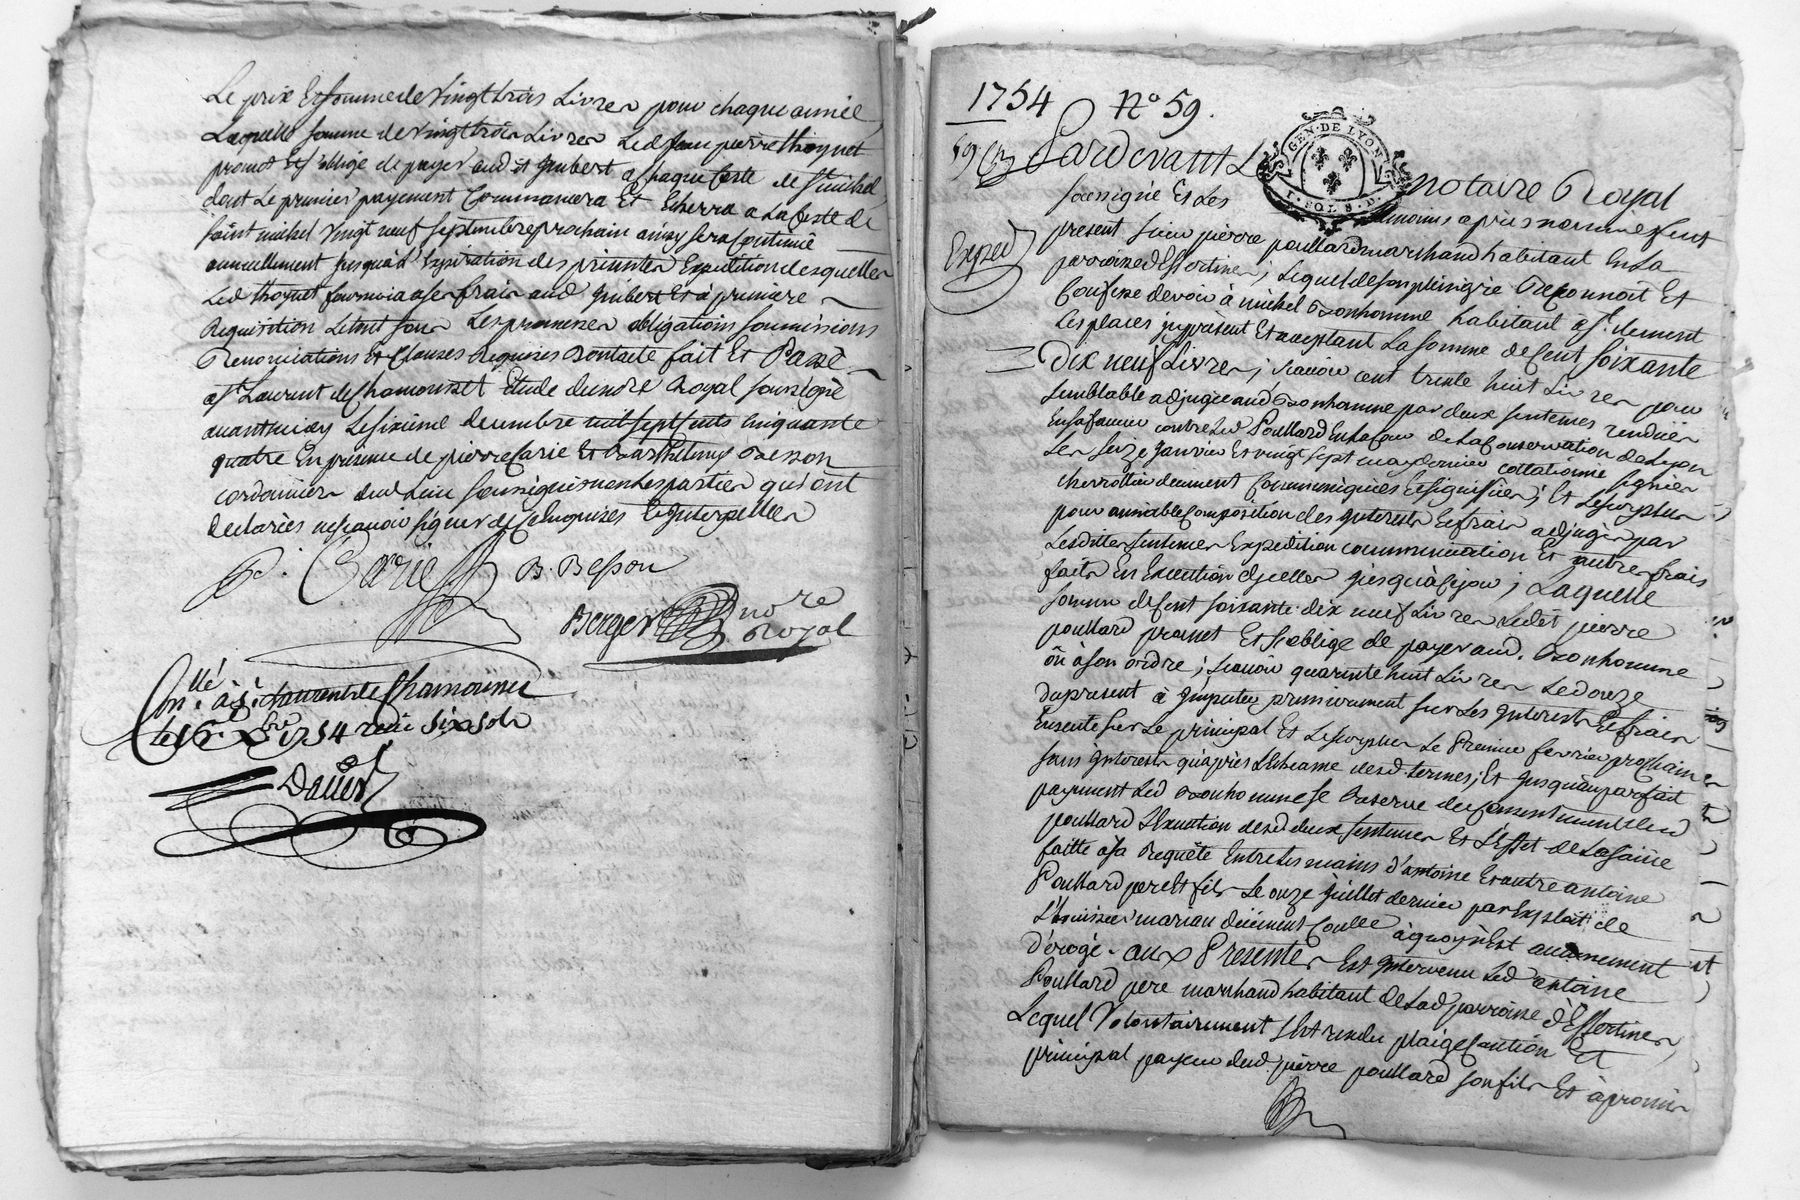 Le prix Et somme de Vingt trois Livres pour chaque année
Laquelle somme de vingt trois Livres Led Jean pierre thoynet
promet Et s'oblige de payer aud st Gubert a chaque feste de st michel
dont Le premier payement Commancera Et Echerra a La feste de
saint michel vingt neuf septembre prochain ainsy sera Continué
annuellement jusqu'à L'expiration des presentes Expedition desquelles
Led thoynet fournira a ses frais aud Gubert Et à premiere
Requisition Le tout sous Les promesses obligations soumissions
Renonciations Et Clauses Requises Dont acte fait Et Passé
a st Laurent de Chamousset Etude du nore Royal soussigné
avant midy Le sixième decembre mil sept cents cinquante
quatre En presence de pierre Carie Et Barthelemy Besson
cordonnier dud Lieu soussignés non Les parties qui ont
declarées ne scavoir signer de ce Enquises Et Interpellées
p. Carie B. Besson
Berger nore
Royal
Conllé à st Laurent de Chamousset
le 16e Xbre 1754 reçu six sols
1754 No 59.
59 Pardevant Le notaire Royal
GEN. DE LYON
soussigné Et Les temoins après nommés fut
Exped
present sieur pierre poullard marchand habitant En La
parroisse d'Essertines, Lequel de son plein gré Reconnoit Et
Confesse devoir à michel Bonhomme habitant a st. clement
Les places jcy présent Et acceptant La somme de Cent soixante
Dix neuf Livres, scavoir cent trente huit Livres pour
semblable adjugée aud Bonhomme par deux sentences rendues
En sa faveur contre Led Poullard En La Cour de La Conservation de Lyon
Les seize Janvier Et vingt sept may dernier collationné signées
cherrottier deuement Communiquées Et signifiées; Et Le surplus
pour amiable Composition des Interests Et frais adjugés par
Lesdittes sentences Expedition communication Et autres frais
faits En Execution d'jcelles jusqu'à ce jour, Laquelle
somme de Cent soixante dix neuf Livres Ledit pierre
poullard promet Et s'oblige de payer aud. Bonhomme
ou à son ordre; scavoir quarente huit Livres Le douze
du present à Imputer premierement sur Les Interests Et frais
Ensuite sur Le principal Et Le surplus Le Premier fevrier prochain
sans Interests qu'après L'Echeance desd. termes; Et jusqu'au parfait
payement Led Bonhomme se Reserve du Consentement dud
poullard L'Execution desd deux sentences Et L'Effet de La saisie
faitte a sa Requête Entre Les mains d'antoine Et autre antoine
Poullard pere Et fils Le onze juillet dernier par Exploit de
L'huissier marian duëment Conllé à quoy n'Est aucunement
dérogé. aux Presentes Est Intervenu Led antoine
Poullard pere marchand habitant de Lad parroisse d'Essertines,
Lequel Volontairement s'Est rendu plaige Caution Et
principal payeur dud. pierre poullard son fils Et à promis